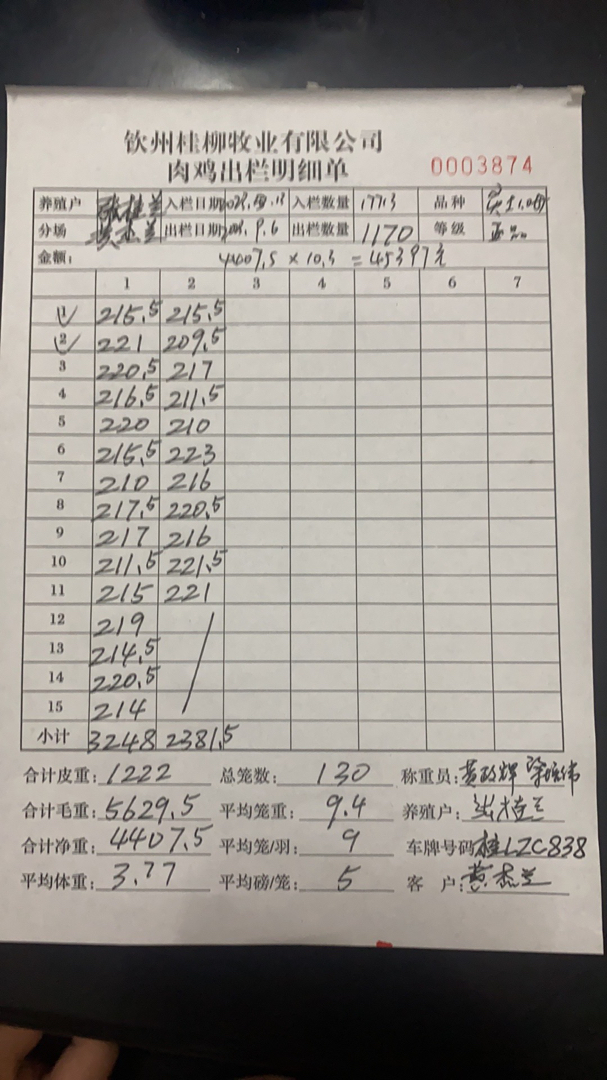 钦州桂柳牧业有限公司
肉鸡出栏明细单 0003874
养殖户 张桂兰 入栏日期 入栏数量 17713 品种
分场 黄杰兰 出栏日期 9.6 出栏数量 1170 等级 正品
金额: 4407.5 × 10.3 = 45397元
1 2 3 4 5 6 7
1 215.5 215.5
2 221 209.5
3 220.5 217
4 216.5 211.5
5 220 210
6 215.5 223
7 210 216
8 217.5 220.5
9 217 216
10 211.5 221.5
11 215 221
12 219
13 214.5
14 220.5
15 214
小计 3248 2381.5
合计皮重: 1222 总笼数: 130 称重员: 黄政辉
合计毛重: 5629.5 平均笼重: 9.4 养殖户:
合计净重: 4407.5 平均笼/羽: 9 车牌号码 桂LZC838
平均体重: 3.77 平均磅/笼: 5 客户: 黄杰兰